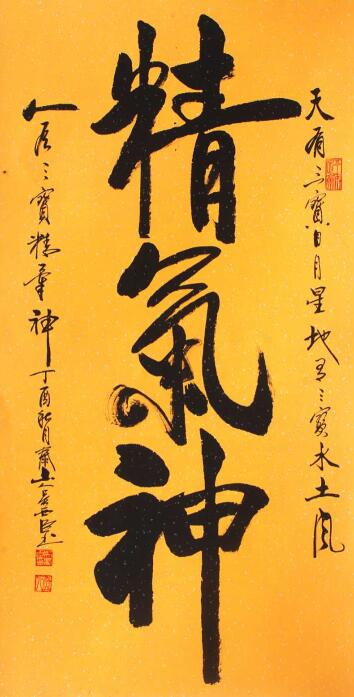 精氣神
天有三寶日月星地有三寶水土風
人有三寶精氣神
丁酉